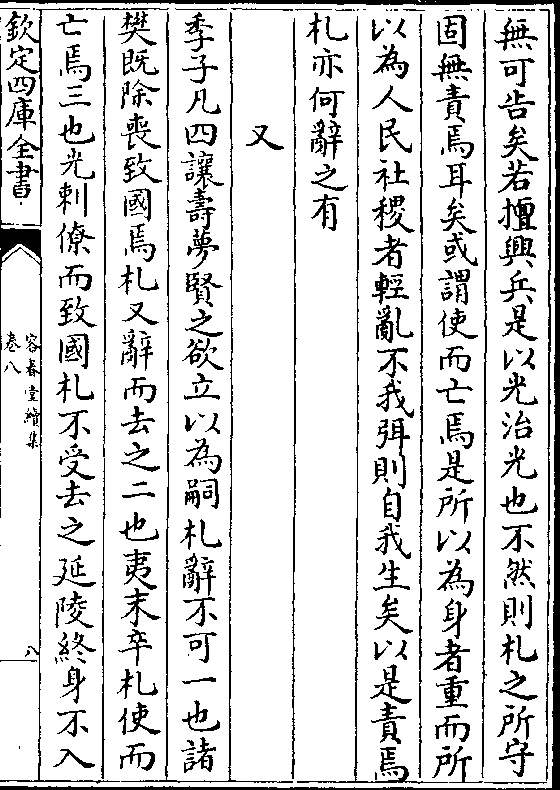 無可告矣若擅興兵是以光治光也不然則札之所守
固無責焉耳矣或謂使而亡焉是所以為身者重而所
以為人民社稷者輕亂不我弭則自我生矣以是責焉
札亦何辭之有
又
季子凡四讓壽夢賢之欲立以為嗣札辭不可一也諸
樊既除喪致國焉札又辭而去之二也夷末卒札使而
亡焉三也光刺僚而致國札不受去之延陵終身不入
欽定四庫全書
容春堂續集
卷八
八